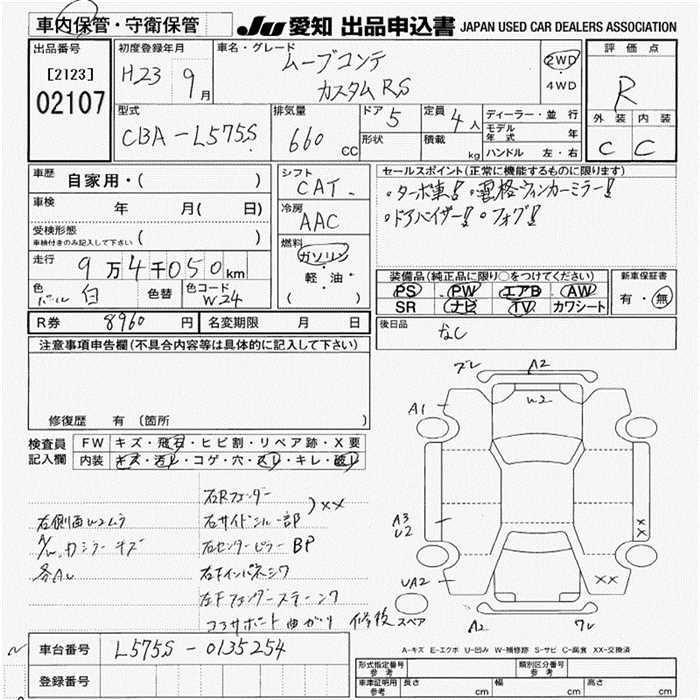 車内保管・守衛保管
JU 愛知 出品申込書 JAPAN USED CAR DEALERS ASSOCIATION
出品番号
[2123]
02107
初度登録年月
H23 9月
車名・グレード
ムーブコンテ
カスタムRS
2WD
・
4WD
評価点
R
外装 内装
C C
型式
CBA-L575S
排気量
660 cc
ドア 5
形状
定員 4人
積載 kg
ディーラー・並行
モデル年式 年
ハンドル 左・右
車歴 自家用・( )
車検 年 月( 日)
受検形態
車検付きのみ記入して下さい ( )
走行 9万4千050km
色 パール 白
色替
色コード W24
シフト CAT
冷房 AAC
燃料 ガソリン
軽・油
( )
セールスポイント(正常に機能するものに限ります)
・ターボ車!! ・電格ウィンカーミラー!!
・ドアバイザー!! ・フォグ!!
装備品(純正品に限り○をつけてください)
PS PW エアB AW
SR ナビ TV カワシート
新車保証書
有・無
R券 8960円
名変期限 月 日
後日品 なし
注意事項申告欄(不具合内容等は具体的に記入して下さい)
修復歴 有 (箇所 )
検査員記入欄
FW キズ・飛石・ヒビ割・リペア跡・X要
内装 キズ・汚レ・コゲ・穴・スレ・キレ・破レ
右Rフェンダー
右サイドシル一部
XX
右センターピラーBP
右Fインパネシワ
左Fフェンダーステーシワ
コアサポート曲がり 修復
右側面W2ムラ
カラミラーキズ
各AU
ズレ A2
W2
A1
A3
U2
UA2
スペア
A2
ワレ
XX
XX
A-キズ E-エクボ U-凹み W-補修跡 S-サビ C-腐食 XX-交換済
車台番号 L575S-0135254
登録番号
形式指定番号
参考
類別区分番号
参考
車庫証明用
参考
長さ cm
幅 cm
高さ cm